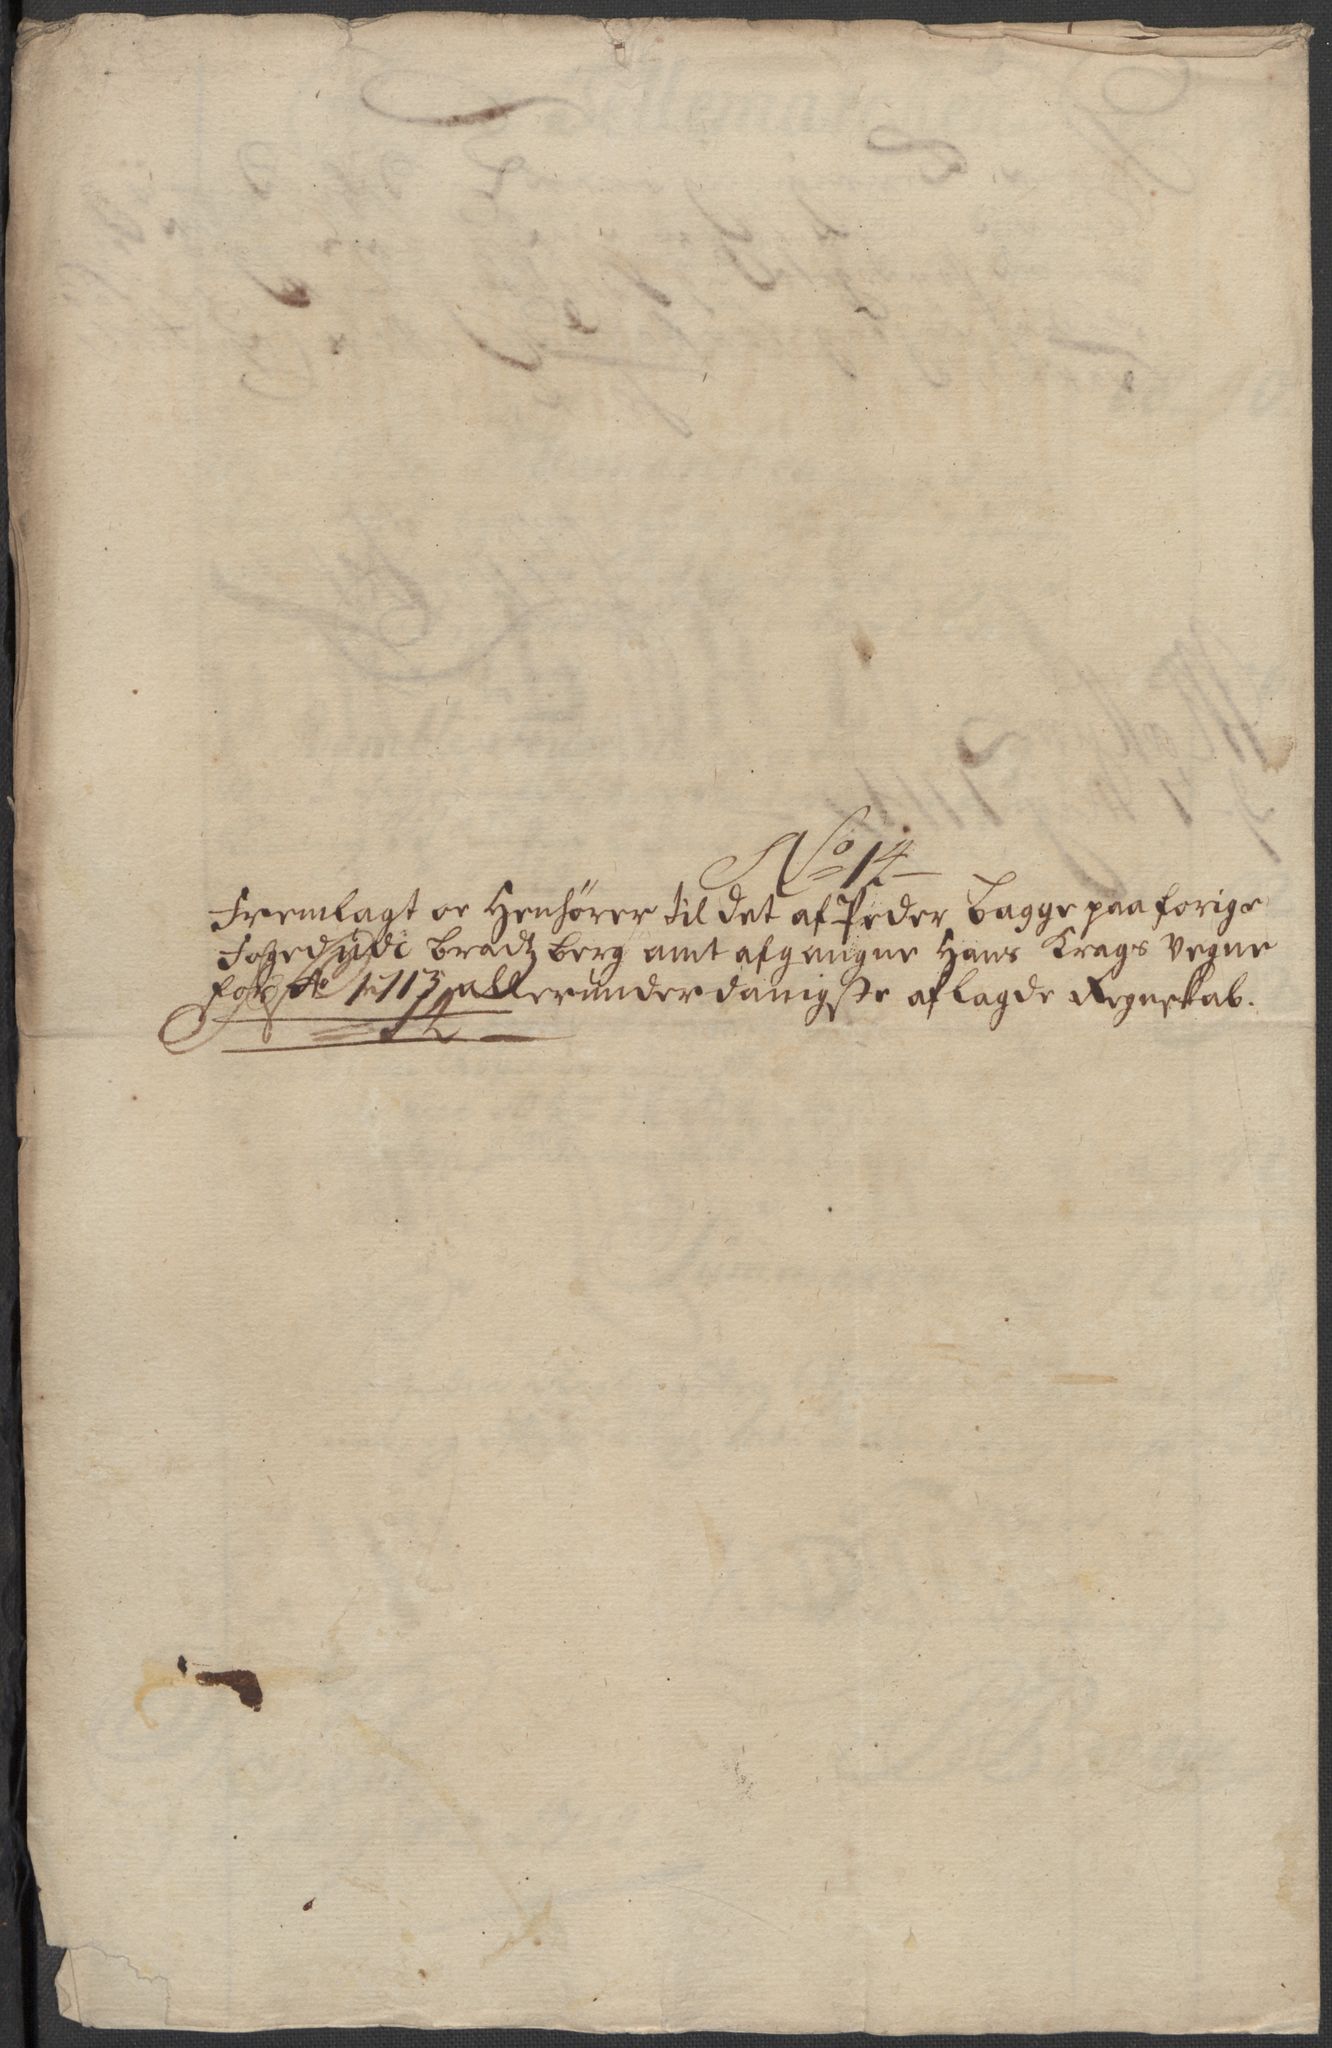 No 14
Fremlagt oc Henhører til det af Peder Bagge paa forige
Foged udi Bradtzberg amt afgangne Hans Krags Vegne
for Ao 1713 allerunderdanigste aflagde Regnskab.